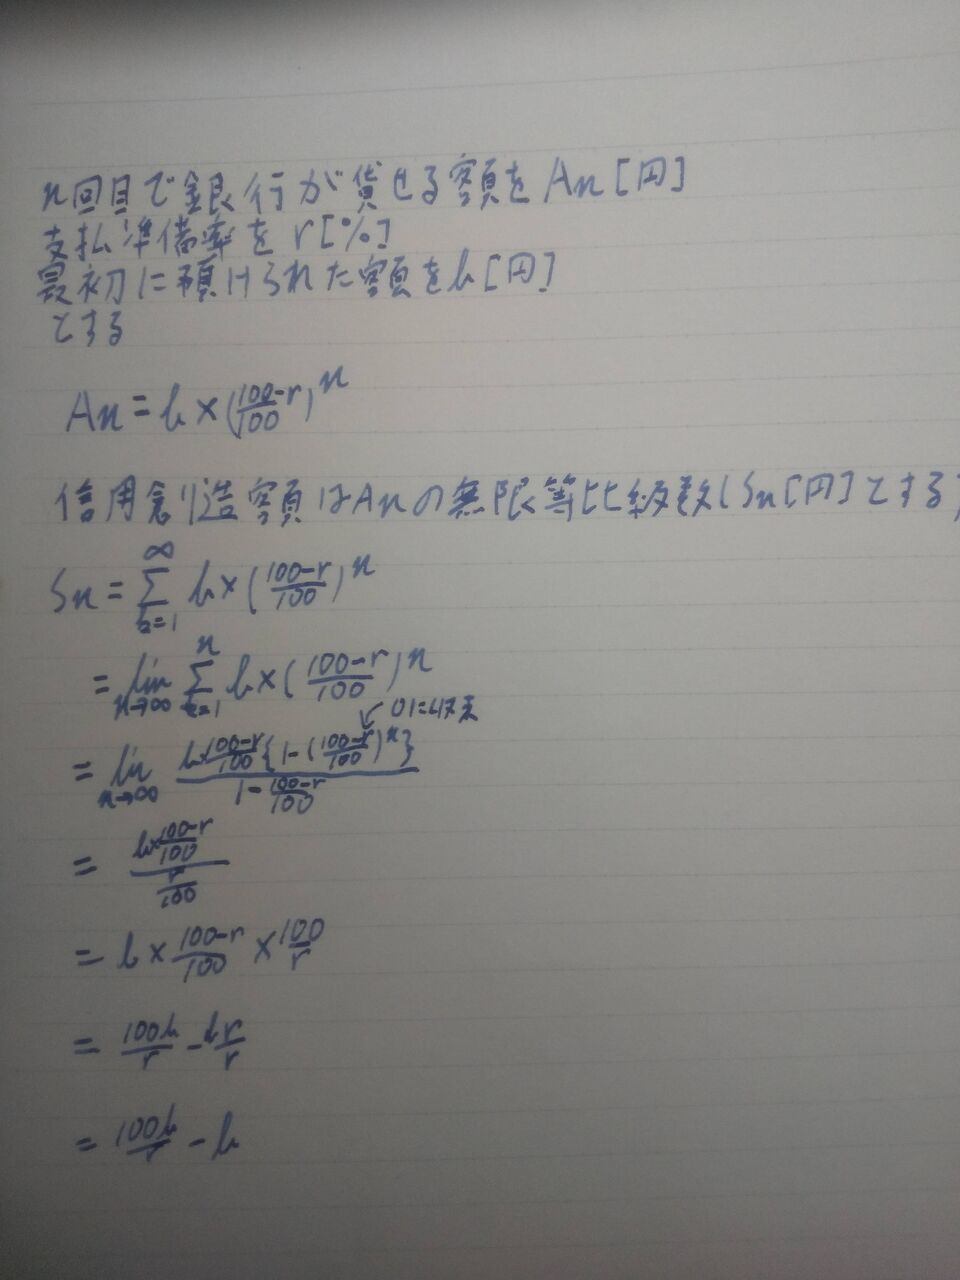 n回目で銀行が貸せる額をAn[円]
支払準備率をr[%]
最初に預けられた額をb[円]
とする
An = b × (100-r/100)^n
信用創造額はAnの無限等比級数(Sn[円]とする)
Sn = ∞Σk=1 b × (100-r/100)^n
= lim n→∞ nΣk=1 b × (100-r/100)^n
↙ 0に収束
= lim n→∞ b×100-r/100{1-(100-r/100)^n} / 1-100-r/100
= b×100-r/100 / r/100
= b × 100-r/100 × 100/r
= 100b/r - br/r
= 100b/r - b